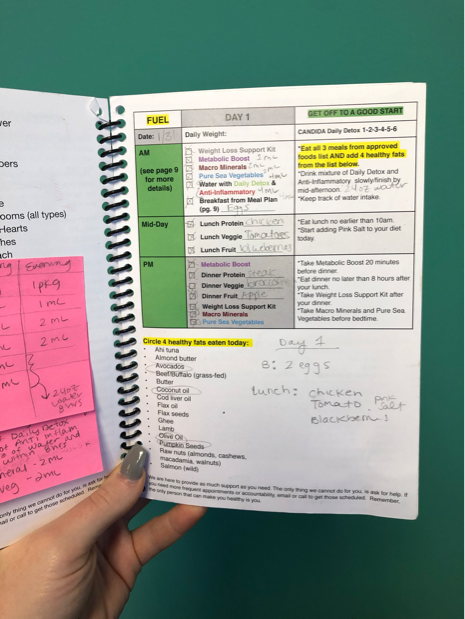 ver
bers
e
ooms (all types)
Hearts
hes
ach
Evening
1 pkg
1 mL
2 mL
2 mL
24oz
water
Daily Detox
of Anti Inflam
of water and
within 8hrs
neral - 2mL
veg - 2mL
only thing we cannot do for you, is ask for
FUEL
DAY 1
GET OFF TO A GOOD START
Date: 1/31
Daily Weight:
CANDIDA Daily Detox 1-2-3-4-5-6
AM
(see page 9
for more
details)
Weight Loss Support Kit
Metabolic Boost 1mL
Macro Minerals
Pure Sea Vegetables
Water with Daily Detox &
Anti-Inflammatory
Breakfast from Meal Plan
(pg. 9) Eggs
*Eat all 3 meals from approved
foods list AND add 4 healthy fats
from the list below.
*Drink mixture of Daily Detox and
Anti-Inflammatory slowly/finish by
mid-afternoon. 24oz water
*Keep track of water intake.
Mid-Day
Lunch Protein chicken
Lunch Veggie Tomatoes
Lunch Fruit
*Eat lunch no earlier than 10am.
*Start adding Pink Salt to your diet
today.
PM
Metabolic Boost
Dinner Protein steak
Dinner Veggie broccoli
Dinner Fruit Apple
Weight Loss Support Kit
Macro Minerals
Pure Sea Vegetables
*Take Metabolic Boost 20 minutes
before dinner.
*Eat dinner no later than 8 hours after
your lunch.
*Take Weight Loss Support Kit after
your dinner.
*Take Macro Minerals and Pure Sea
Vegetables before bedtime.
Circle 4 healthy fats eaten today:
Ahi tuna
Almond butter
Avocados
Beef/Buffalo (grass-fed)
Butter
Coconut oil
Cod liver oil
Flax oil
Flax seeds
Ghee
Lamb
Olive Oil
Pumpkin Seeds
Raw nuts (almonds, cashews,
macadamia, walnuts)
Salmon (wild)
Day 1
B: 2 eggs
Lunch: chicken
Tomato, pink salt
Blackberries
We are here to provide as much support as you need. The only thing we cannot do for you, is ask for help. If
you need more frequent appointments or accountability, email or call to get those scheduled. Remember,
the only person that can make you healthy is you.